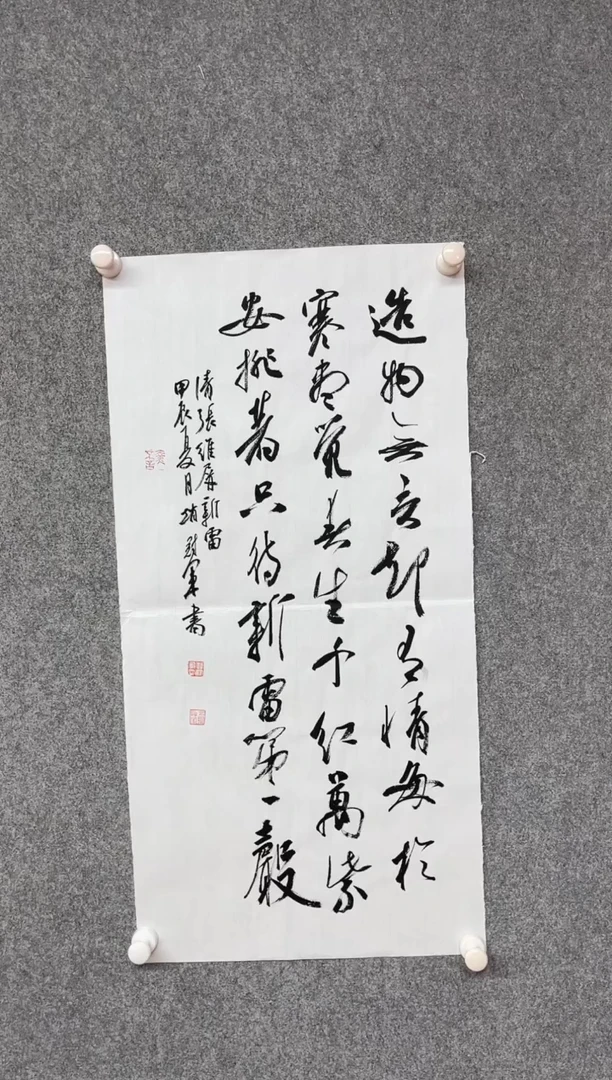 造物無言却有情每於
寒盡覺春生千紅萬紫
安排著只待新雷第一聲
清張維屏新雷
甲辰夏月趙
軍書